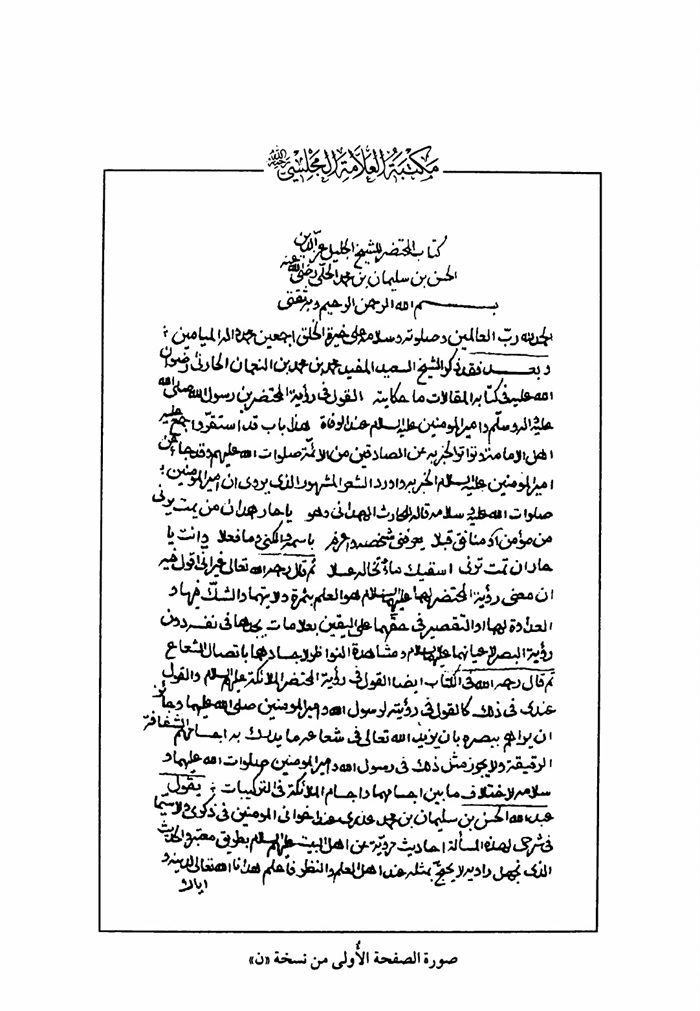 مكتبة العلامة المجلسي رحمه الله
كتاب المحتضر للشيخ الجليل عز الدين
الحسن بن سليمان بن محمد الحلي رضي الله عنه
بسم الله الرحمن الرحيم وبه ثقتي
الحمد لله رب العالمين وصلوته وسلامه على خيرة الخلق اجمعين محمد واله الميامين
وبعد فقد ذكر الشيخ السعيد المفيد محمد بن محمد بن النعمان الحارثي رضوان
الله عليه في كتابه المقالات ما حكايته القول في رؤية المحتضرين رسول الله صلى الله
عليه واله وسلم وامير المومنين عليه السلام عند الوفاة هذا باب قد استقر واجمع عليه
اهل الامامة وتواتر الخبر به عن الصادقين من الائمة صلوات الله عليهم وقد جاء عن
امير المومنين عليه السلام الخبر به واورد الشعر المشهور الذى يروى ان امير المومنين
صلوات الله عليه وسلامه قاله للحارث الهمداني وهو يا حار همدان من يمت يرني
من مؤمن او منافق قبلا يعرفني شخصه واعرفه باسمه والكنى وما فعلا وانت يا
حار ان تمت ترني اسقيك ماء تخاله عسلا ثم قال رحمه الله تعالى غير اني اقول فيه
ان معنى رؤية المحتضر لهما عليهما السلام هو العلم بثمرة ولايتهما والشك فيهما و
العداوة لهما او التقصير في حقهما على اليقين بعلامات يجدها في نفسه دون
رؤية البصر لاعيانهما عليهما السلام ومشاهدة النواظر لاجسادهما باتصال الشعاع
ثم قال رحمه الله في الكتاب ايضا القول في رؤية المحتضر الملائكة عليهم السلام والقول
عندى في ذلك كالقول في رؤيته لرسول الله وامير المومنين صلى الله عليهما وجائز
ان يراهم ببصره بان يزيد الله تعالى في شعاعه ما يدرك به اجسامهم الشفافة
الرقيقة ولا يجوز مثل ذلك في رسول الله وامير المومنين صلوات الله عليهما و
سلامه لاختلاف ما بين اجسامهما واجسام الملائكة في التركيبات يقول
عبد الله الحسن بن سليمان بن محمد عذري عند اخواني المومنين في ذكرى ولا سيما
في شرحي لهذه المسألة احاديث مروية عن اهل البيت عليهم السلام بطريق معتبر والحديث
الذى نجهل راويه لا يحتج بمثله عند اهل العلم والنظر فاعلم هدانا الله تعالى لدينه و
اياك
صورة الصفحة الأولى من نسخة «ن»